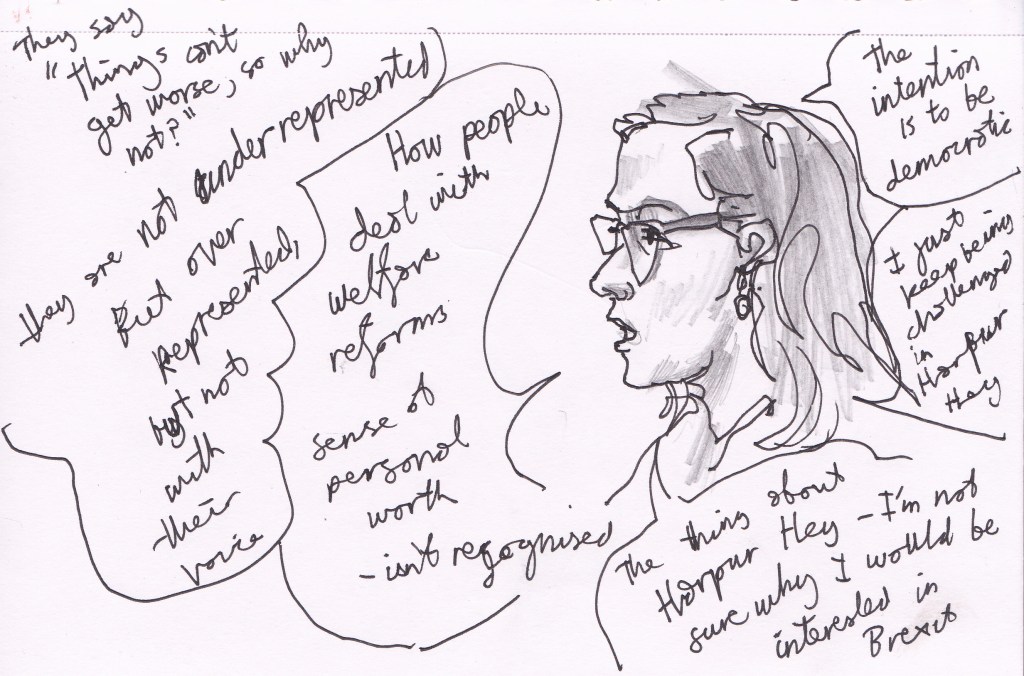 They say
"things can't
get worse, so why
not?"
they are not underrepresented
But over
represented,
but not
with
their
voice
How people
deal with
welfare
reforms
sense of
personal
worth
- isn't recognised
The
intention
is to be
democratic
I just
keep being
challenged
in
Harpur
Hey
The thing about
Harpur Hey - I'm not
sure why I would be
interested in
Brexit